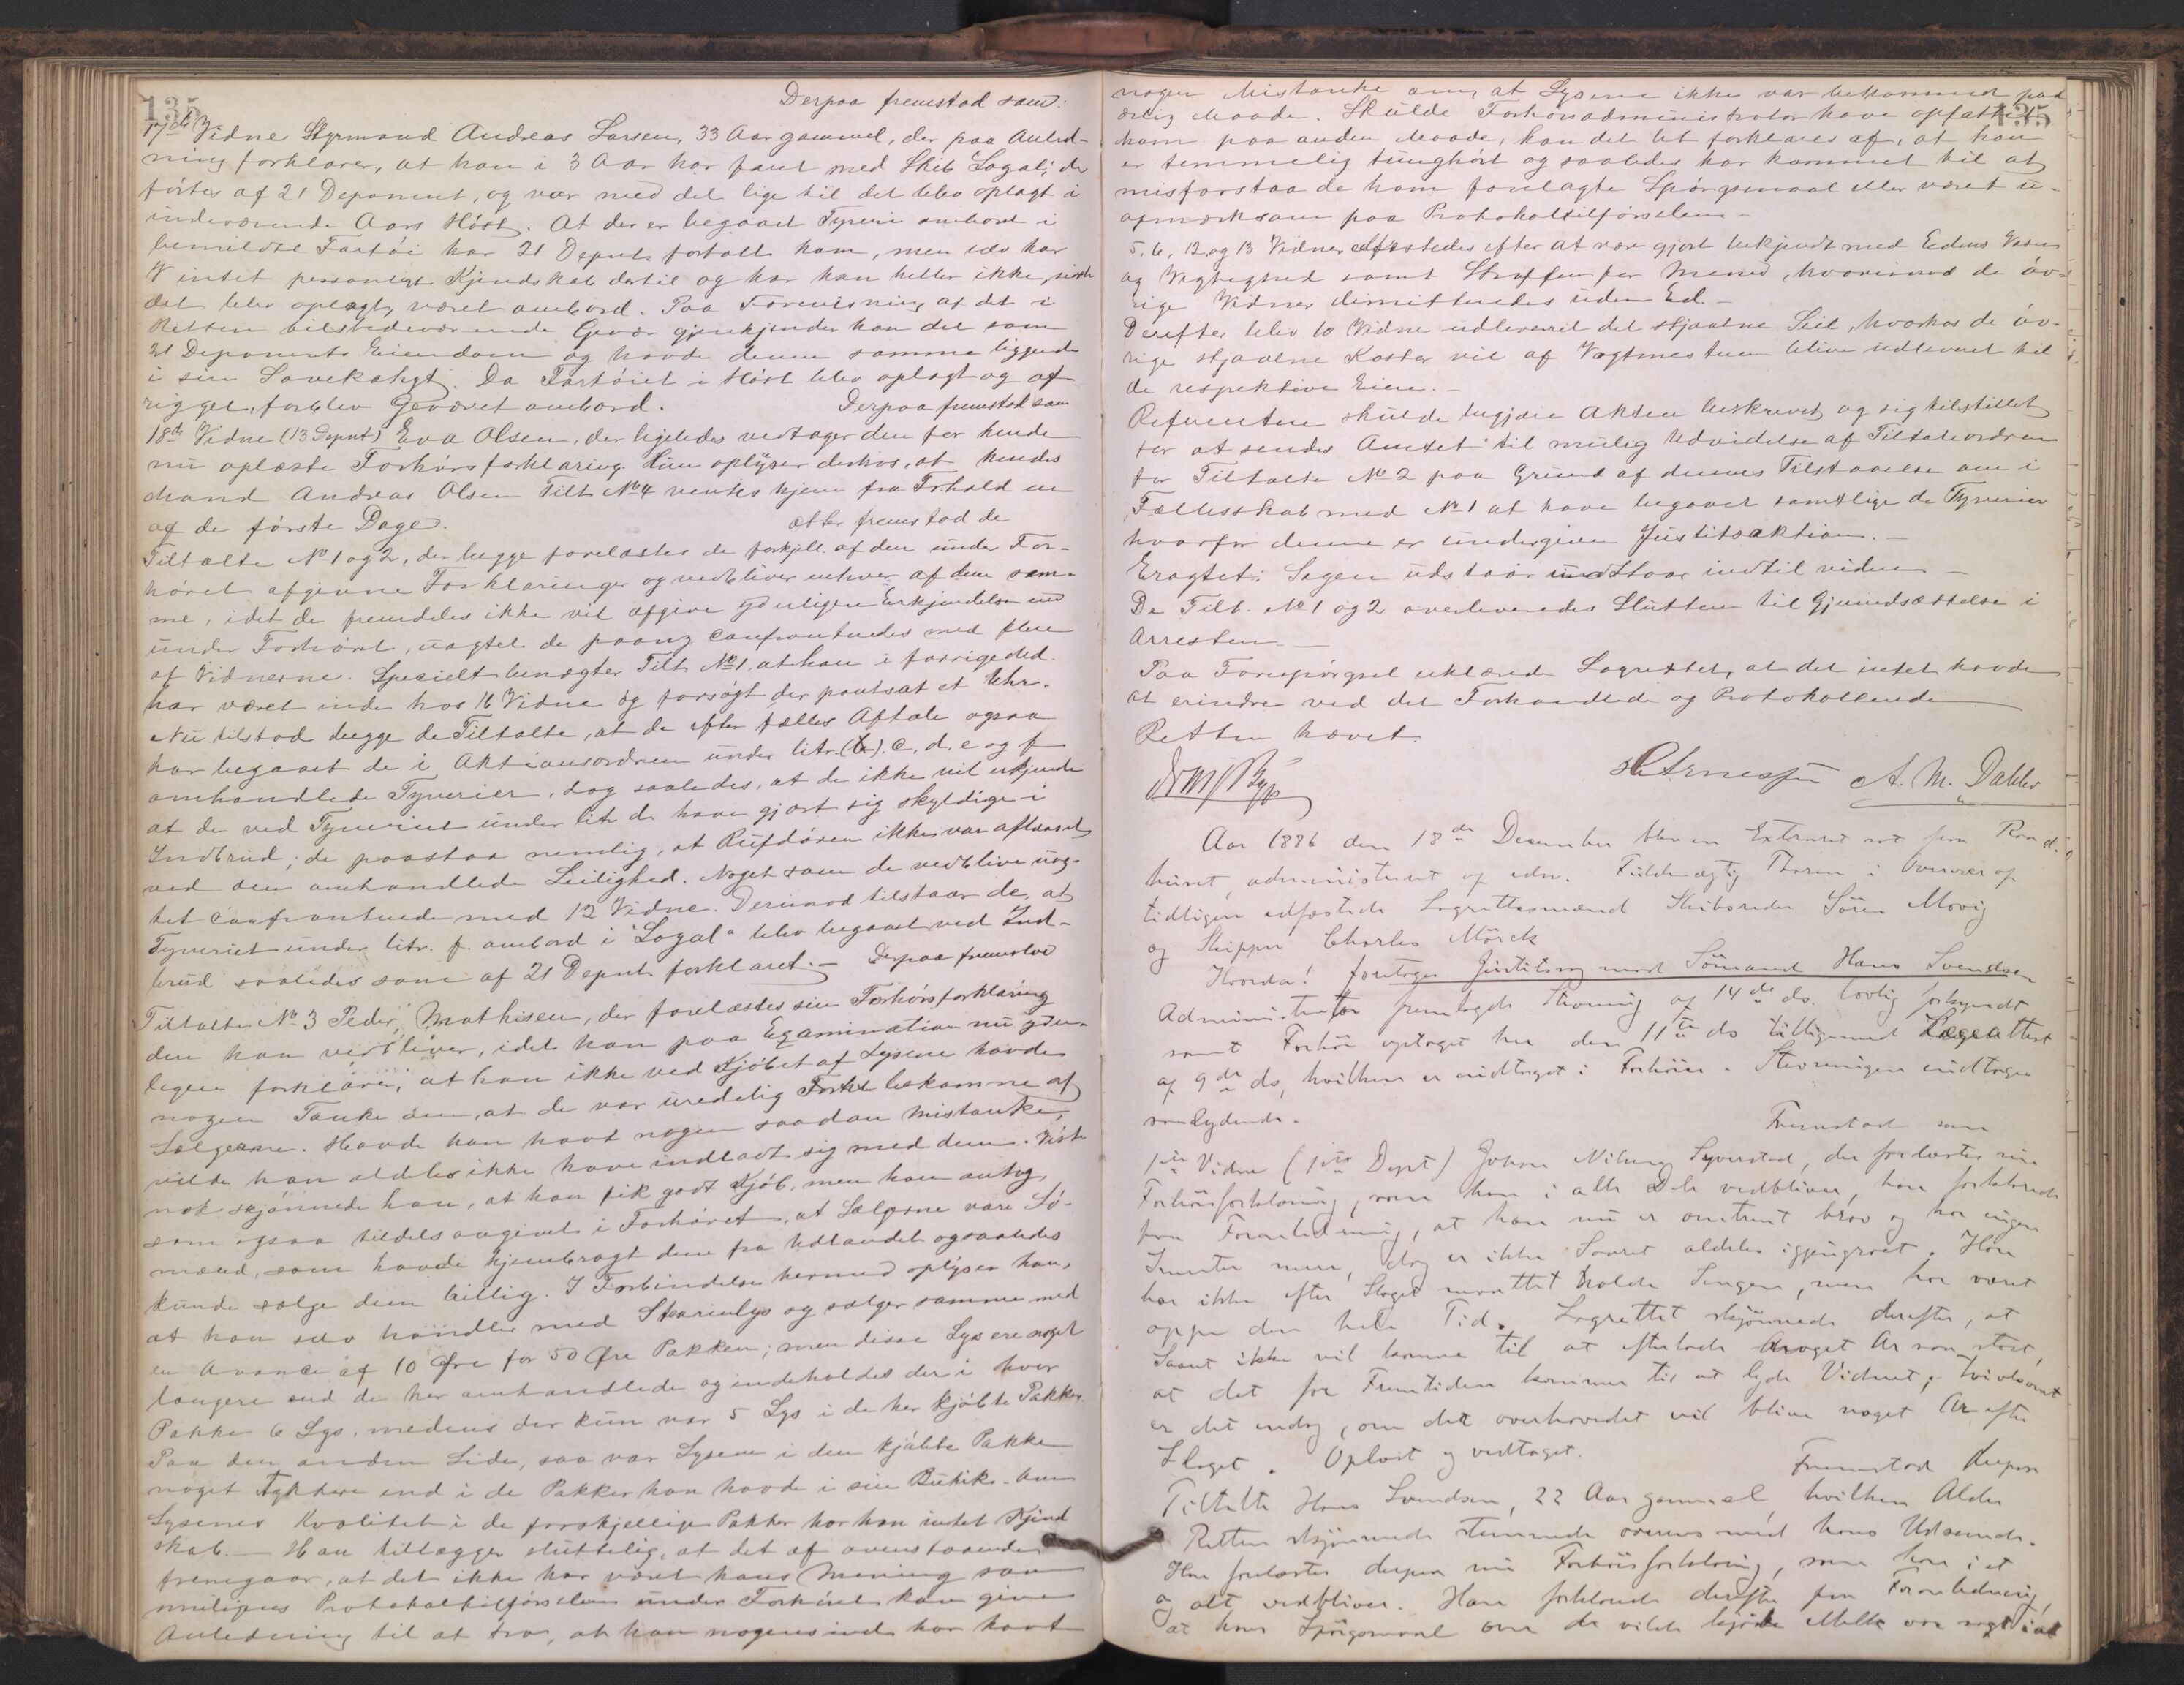 135
Derpaa fremstod som:
17de Vidne Styrmand Andreas Larsen, 33 Aar gammel, der paa Anled-
ning forklarer, at han i 3 Aar har faret med Skib "Logal", der
førtes af 21 Deponent, og var med det lige til det blev oplagt i
indeværende Aars Høst. At der er begaaet Tyveri ombord i
bemeldte Fartøi har 21 Depnt. fortalt ham, men selv har
V intet personligt Kjendskab dertil og har han heller ikke, siden
det blev oplagt, været ombord. Paa Forevisning af det i
Retten tilstedeværende Gevær gjenkjender han det som
21 Deponents Eiendom og havde denne samme liggende
i sin Lovekahyt. Da Fartøiet i Høst blev oplagt og af-
rigget, forblev Geværet ombord. Derpaa fremstod som
18de Vidne (13 Depnt) Eva Olsen, der ligeledes vedtager den for hende
nu oplæste Forhørsforklaring. Hun oplyser derhos, at hendes
Mand Andreas Olsen Tilt. No 4 ventes hjem fra Forhold en
af de første Dage. Atter fremstod de
Tiltalte No 1 og 2, der begge forelæstes de forskjell. af dem under For-
høret afgivne Forklaringer og vedbliver enhver af dem sam-
me, idet de fremdeles ikke vil afgive yderligere Erkjendelse end
under Forhøret, uagtet de paany confronteredes med flere
af Vidnerne. Specielt benægter Tilt. No 1, at han i forrige Md.
har været inde hos 16 Vidne og forsøgt der pantsat et Uhr.
Nu tilstod begge de Tiltalte, at de efter fælles Aftale ogsaa
har begaaet de i Aktionsordren under litr. (b). c, d. e og f
omhandlede Tyverier, dog saaledes, at de ikke vil erkjende
at de ved Tyveriet under litr. d. have gjort sig skyldige i
Indbrud; de paastaa nemlig, at Rufdøren ikke var aflaaset
ved den omhandlede Leilighed. Noget som de vedblive uag-
tet confronterede med 12 Vidne. Derimod tilstaar de, at
Tyveriet under litr. f. ombord i "Logal" blev begaaet ved Ind-
brud saaledes som af 21 Depnt. forklaret. – Derpaa fremstod
Tiltalte No 3 Peder Mathisen, der forelæstes sin Forhørsforklaring
den han vedbliver, idet han paa Examination nu yder-
ligere forklarer, at han ikke ved Kjøbet af Lysene havde
nogen Tanke om, at de var uredelig bekomne af
Sælgerne. Havde han havt nogen saadan Mistanke,
vilde han aldeles ikke have indladt sig med dem. Vist
nok skjønnede han, at han fik godt Kjøb, men han antog,
som ogsaa tildels angivet i Forhøret, at Sælgerne vare Sø-
mænd, som havde hjembragt dem fra Udlandet og saaledes
kunde sælge dem billig. I Forbindelse hermed oplyser han,
at han selv handler med Stearinlys og sælger samme med
en Avance af 10 Øre for 50 Øre Pakken; men disse Lys ere noget
længere end de her omhandlede og indeholdes der i hver
Pakke 6 Lys, medens der kun var 5 Lys i de her kjøbte Pakker.
Paa den anden Side, saa var Lysene i den kjøbte Pakke
noget tykkere end i de Pakker han havde i sin Butik. Om
Lysenes Kvalitet i de forskjellige Pakker har han intet Kjend
skab. – Han tillægger sluttelig, at det af ovenstaaende
fremgaar, at det ikke har været hans Mening som
muligens Protokoltilførselen under Forhøret kan give
Anledning til at tro, at han nogensinde har havt
135
nogen Mistanke om, at Lysene ikke var bekommet paa
ærlig Maade. Skulde Forhørsadministrator have opfattet
ham paa anden Maade, kan det let forklares af, at han
er temmelig tunghørt og saaledes har kommet til at
misforstaa de ham forelagte Spørgsmaal eller været u-
opmærksom paa Protokoltilførselen –
5, 6, 12, og 13 Vidner edfæstedes efter at være gjort bekjendt med Edens Væsen
og Vigtighed samt Straffen for Mened, hvorimod de øv-
rige Vidner dimitteredes uden Ed. –
Derefter blev 10 Vidne udleveret det stjaalne Seil, hvorhos de øv-
rige stjaalne Koster vil af Vagtmesteren blive udleveret til
de respektive Eiere. –
Referenten skulde begjære Akten beskrevet og sig tilstillet
for at sendes Amtet til mulig Udvidelse af Tiltaleordren
for Tiltalte No 2 paa Grund af dennes Tilstaaelse om i
Fællesskab med No 1 at have begaaet samtlige de Tyverier
hvorfor denne er undergiven Justitsaktion. –
Eragtet: Sagen udstaar indtil videre –
De Tilt. No 1 og 2 overleveredes Slutteren til Gjenindsættelse i
Arresten –
Paa Forespørgsel erklærede Lagrettet, at det intet havde
at erindre ved det Forhandlede og Protokollerede
Retten hævet.
A. M. Dahler
Aar 1886 den 18de December blev en Extraret sat paa Raad-
huset, administreret af edsv. Fuldmægtig Thorne i Overvær af
tidligere edfæstede Lagrettesmænd Skibsreder Søren Movig
og Skipper Charles Mörck
Hvorda! foretoges Justitssag mod Sømand Hans Svendsen
Administrator fremlagde Stevning af 14de ds. lovlig forkyndt
samt Forhør optaget her den 11te ds tilligemed Lægeattest
af 9de ds, hvilken er indtaget i Forhøret. Stevningen indtages
saalydende.
Fremstod som
1ste Vidne (1ste Dept) Johan Nilsen Syverstad, der forelæstes sin
Forhørsforklaring, som han i alle Dele vedbliver, han forklarede
paa Foranledning, at han nu er omtrent brav og har ingen
Smerter mere, dog er ikke Saaret aldeles igjengroet. Han
har ikke efter Slaget maattet holde Sengen, men har været
oppe den hele Tid. Lagrettet skjønnede derefter, at
Saaret ikke vil komme til at efterlade noget Ar saa stort,
at det for Fremtiden kommer til at lyde Vidnet, tvivlsomt
er det endog, om det overhovedet vil blive noget Ar efter
Slaget. Oplæst og vedtaget.
Fremstod derpaa
Tiltalte Hans Svendsen, 22 Aar gammel, hvilken Alder
Retten skjønnede stemmende overens med hans Udseende.
Han forelæstes derpaa sin Forhørsforklaring, som han i et
og alt vedbliver. Han forklarede derefter paa Foranledning,
at hans Spørgsmaal om de vilde kjøbe Melk var sagt i al